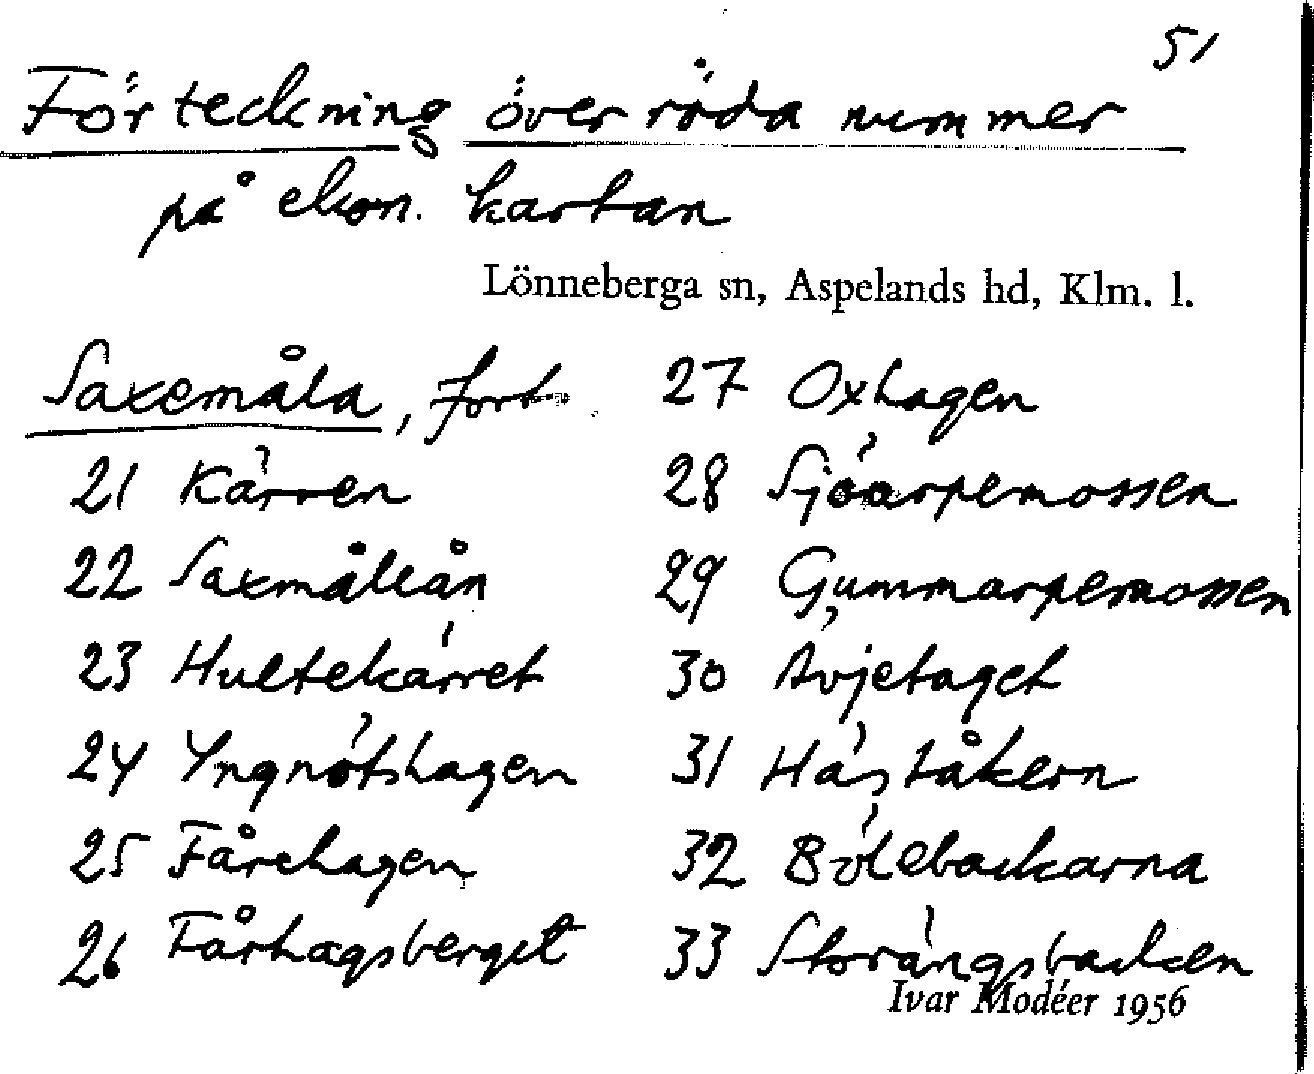 51
Förteckning över röda nummer
på ekon. kartan
Lönneberga sn, Aspelands hd, Klm. l.
Saxemåla, forts.
21 Kärren
22 Saxmåleån
23 Hultekärret
24 Yngnötshagen
25 Fårehagen
26 Fårhagsberget
27 Oxhagen
28 Sjöarpemossen
29 Gummarpemossen
30 Ävjetaget
31 Häståkern
32 Bölebackarna
33 Storängsbacken
Ivar Modéer 1956